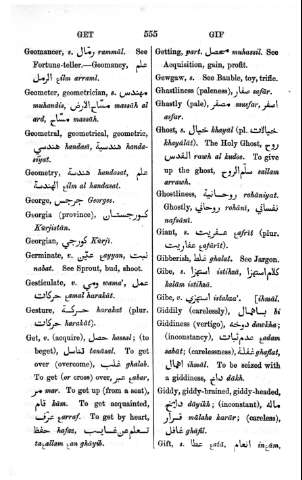 GET 555 GIF
Geomancer, s. رمّال rammāl. See
Fortune-teller.—Geomancy, علم
الرمل ɛilm arraml.
Geometer, geometrician, s. مهندس
muhandis, مسّاح الارض massāḥ al
arḍ, مسّاح massāḥ.
Geometral, geometrical, geometric,
هندسي handasī, هندسية handa-
sīyat.
Geometry, s. هندسة handasat, علم
الهندسة ɛilm al handasat.
George, جرجس Georges.
Georgia (province), كورجستان
K'urjistān.
Georgian, كورجي K'urjī.
Germinate, v. عيّن ɛayyan, نبت
nabat. See Sprout, bud, shoot.
Gesticulate, v. ومى wama', عمل
حركات ɛamal ḥarakāt.
Gesture, حركة ḥarakat (plur.
حركات ḥarakāt).
Get, v. (acquire), حصل ḥassal; (to
beget), تناسل tanāsal. To get
over (overcome), غلب ghalab.
To get (or cross) over, عبر ɛabar,
مر mar. To get up (from a seat),
قام ḳām. To get acquainted,
عرّف ɛarraf. To get by heart,
حفظ ḥafaẓ, تعلم عن غايب
taɛallam ɛan ghāyib.
Getting, part. محصل muḥassil. See
Acquisition, gain, profit.
Gewgaw, s. See Bauble, toy, trifle.
Ghastliness (paleness), صفار ṣafār.
Ghastly (pale), مصفر muṣfar, اصفر
aṣfar.
Ghost, s. خيال khayāl (pl. خيالات
khayālāt). The Holy Ghost, روح
القدس rawḥ al kudos. To give
up the ghost, سلم الروح sallam
arrawḥ.
Ghostliness, روحانية roḥāniyat.
Ghostly, روحاني roḥānī, نفساني
nafsānī.
Giant, s. عفريت ɛafrīt (plur.
عفاريت ɛafārīt).
Gibberish, غلط ghalaṭ. See Jargon.
Gibe, s. استهزا istihzā, كلام استهزا
kalām istihzā.
Gibe, v. استهزا istahza'. [ihmāl.
Giddily (carelessly), باهمال bi
Giddiness (vertigo), دوخة dawkha;
(inconstancy), عدم ثبات ɛadam
sabāt; (carelessness), غفلة ghaflat,
اهمال ihmāl. To be seized with
a giddiness, داخ dākh.
Giddy, giddy-brained, giddy-headed,
دايخ dāyikh; (inconstant), ماله
قرار mālaho ḳarār; (careless),
غافل ghāfil.
Gift, s. عطا ɛaṭā, انعام inɛām,